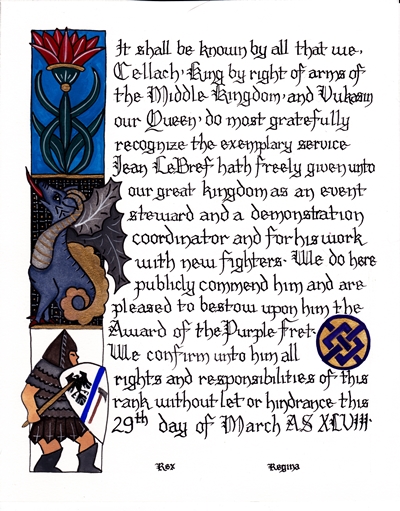 It shall be known by all that we,
Cellach, King by right of arms of
the Middle Kingdom, and Vukasin
our Queen, do most gratefully
recognize the exemplary service
Jean LeBref hath freely given unto
our great kingdom as an event
steward and a demonstration
coordinator and for his work
with new fighters. We do here
publicly commend him and are
pleased to bestow upon him the
Award of the Purple Fret.
We confirm unto him all
rights and responsibilities of this
rank without let or hindrance this
29th day of March AS XLVIII.
Rex Regina